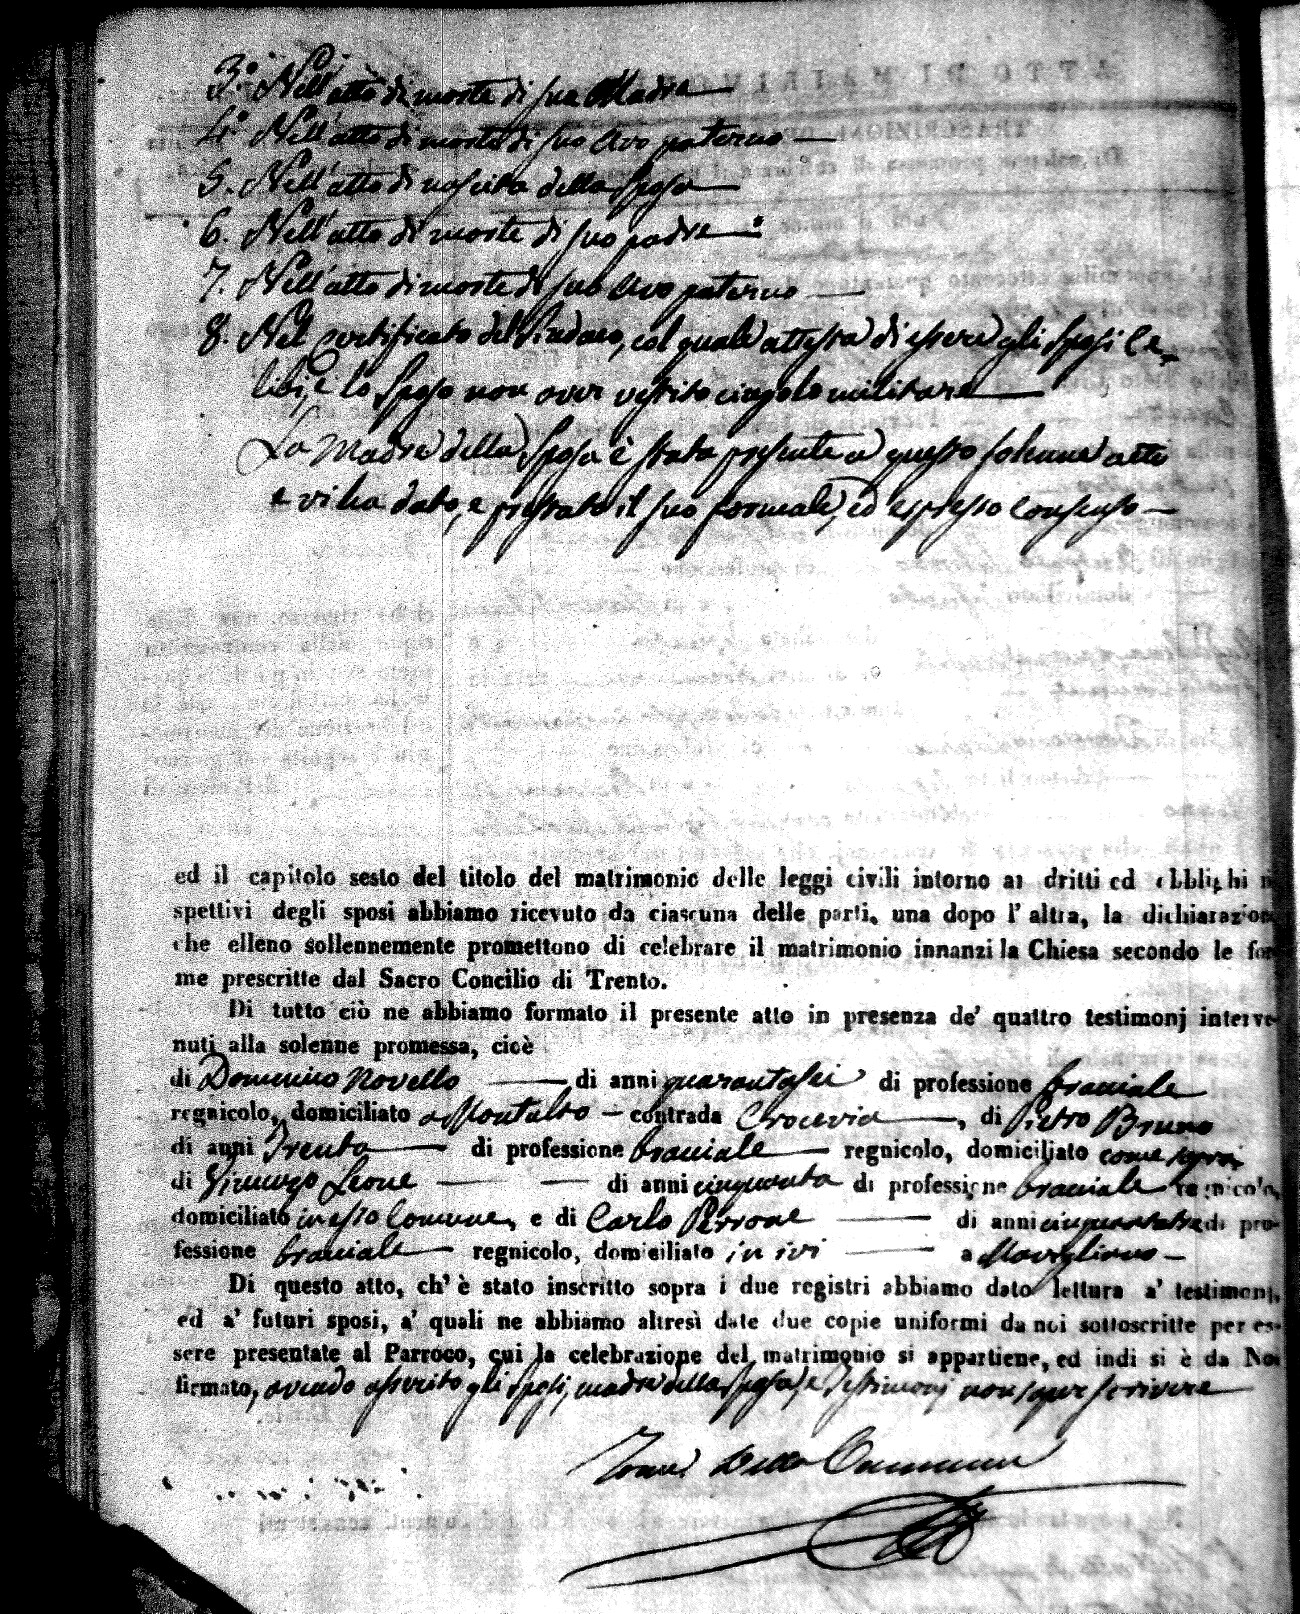 3.° Nell'atto di morte di sua Madre —
4.° Nell'atto di morte di suo Avo paterno —
5. Nell'atto di nascita della Sposa —
6. Nell'atto di morte di suo padre —
7. Nell'atto di morte di suo Avo paterno —
8. Nel certificato del Sindaco, col quale attesta di essere gli Sposi ce-
libi, e lo Sposo non aver vestito cingolo militare —
La Madre della Sposa è stata presente a questo solenne atto
e vi ha dato, e prestato il suo formale, ed espresso consenso —
ed il capitolo sesto del titolo del matrimonio delle leggi civili intorno ai dritti ed obblighi
spettivi degli sposi abbiamo ricevuto da ciascuna delle parti, una dopo l' altra, la dichiarazione
che elleno sollennemente promettono di celebrare il matrimonio innanzi la Chiesa secondo le for
me prescritte dal Sacro Concilio di Trento.
Di tutto ciò ne abbiamo formato il presente atto in presenza de' quattro testimonj interve-
nuti alla solenne promessa, cioè
di Domenico Novello — di anni quarantasei di professione bracciale
regnicolo, domiciliato a Montalto — contrada Crocevia —, di Pietro Bruno
di anni Trenta — di professione bracciale — regnicolo, domiciliato come sopra
di Vincenzo Leone — — di anni cinquanta di professione bracciale regnicolo,
domiciliato in esso Comune, e di Carlo Perrone — di anni cinquantatre di pro-
fessione bracciale — regnicolo, domiciliato in ivi — a Mavigliano —
Di questo atto, ch' è stato inscritto sopra i due registri abbiamo dato lettura a' testimonj,
ed a' futuri sposi, a' quali ne abbiamo altresì date due copie uniformi da noi sottoscritte per es-
sere presentate al Parroco, cui la celebrazione del matrimonio si appartiene, ed indi si è da Noi
firmato, avendo asserito gli Sposi, madre della Sposa, e Testimonj non saper scrivere